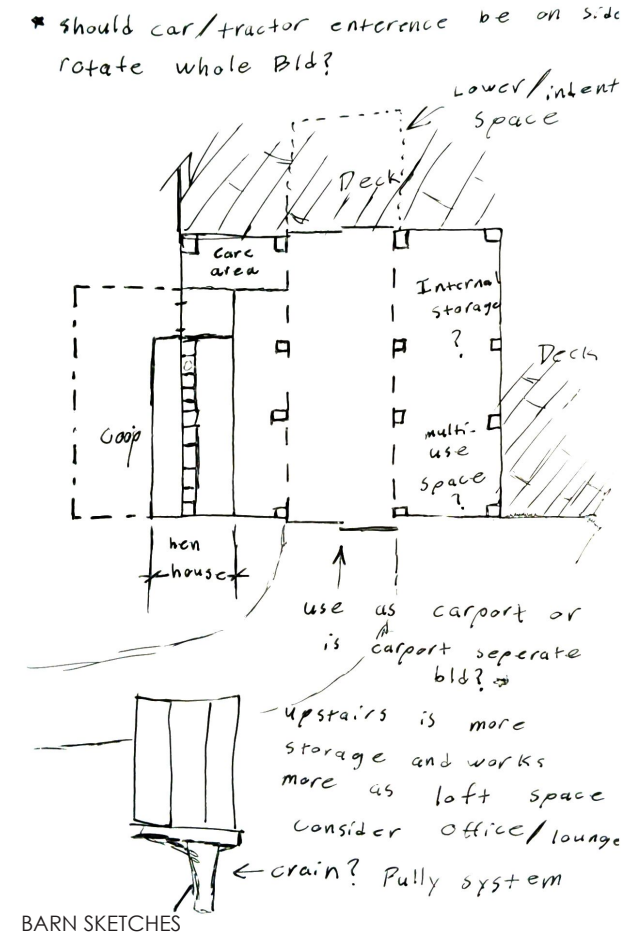 * should car/tractor enterence be on side
rotate whole Bld?
Lower/indent
space
Deck
care
area
Internal
storage
?
Deck
coop
multi-
use
space
?
hen
house
use as carport or
is carport seperate
bld?
upstairs is more
storage and works
more as loft space
consider office/lounge
crain? Pully system
BARN SKETCHES